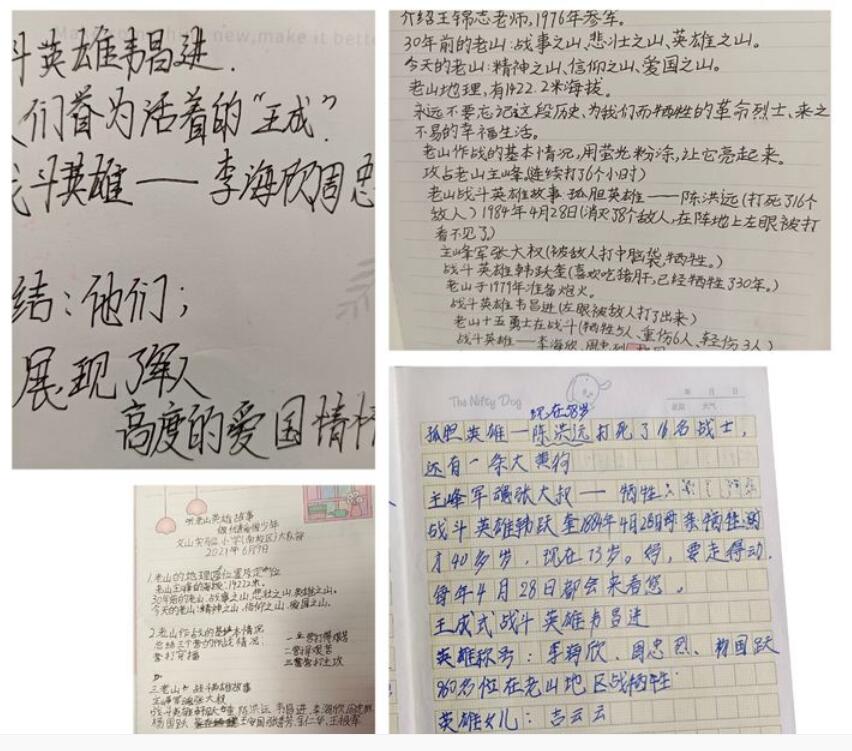 new, make it bette
斗英雄韦昌进.
们誉为活着的“王成”?
斗英雄——李海欣周忠
结:他们;
展现了军人
高度的爱国情
介绍王锦志老师,1976年参军。
30年前的老山:战事之山、悲壮之山、英雄之山。
今天的老山:精神之山、信仰之山、爱国之山。
老山地理,有1422.2米海拔。
永远不要忘记这段历史、为我们而牺牲的革命烈士、来之
不易的幸福生活。
老山作战的基本情况,用萤光粉涂,让它亮起来。
攻占老山主峰。(连续打了6个小时)
老山战斗英雄故事:孤胆英雄——陈洪远(打死了16个
敌人)1984年4月28日(消灭了8个敌人,在阵地上左眼被打
看不见了)
主峰军张大权(被敌人打中脑袋,牺牲。)
战斗英雄韩跃奎(喜欢吃猪肝,已经牺牲了30年。)
老山于1979年准备炮火。
战斗英雄韦昌进(左眼被敌人打了出来)
老山十五勇士在战斗(牺牲5人、重伤6人、轻伤3人)
战斗英雄——李海欣、周忠烈
听老山英雄故事
文山实验小学(南校区)大队部
2021年6月9日
1.老山的地理位置及定位
老山主峰的海拔:1422.2米.
30年前的老山:战事之山、悲壮之山、英雄之山.
今天的老山:精神之山、信仰之山、爱国之山.
2.老山作战的基本情况
总结三个营的作战情况:
一营打得艰苦
二营穿艰苦
营打穿插
三营打主攻
三.老山战斗英雄故事
主峰军张大权
战斗英雄韩跃奎、陈洪远、韦昌进、李海欣、周忠烈
杨国跃
The Nifty Dog
年 月 日
星期 天气
现在58岁
孤胆英雄—陈洪远打死了16名战士,
还有一条大黄狗
主峰军魂张大叔——牺牲
战斗英雄韩跃奎1884年4月28日母亲牺牲时
才40多岁,现在73岁。得,要走得动,
每年4月28日都会来看您。
王成式战斗英雄韦昌进
英雄称号:李海欣、周忠烈、杨国跃
960名位在老山地区战牺牲
英雄女儿:吉云云